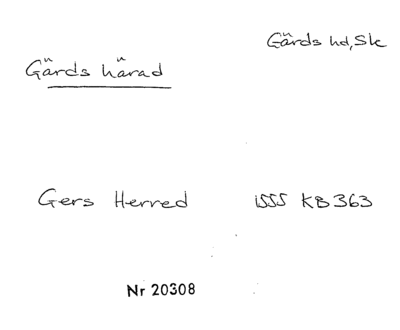 Gärds hd, Sk
Gärds härad
Gers Herred 1555 KB 363
Nr 20308